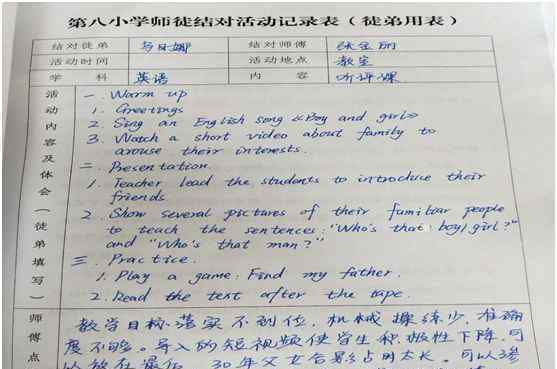 第八小学师徒结对活动记录表(徒弟用表)
结对徒弟 结对师傅 张金丽
活动时间 活动地点 教室
学 科 英语 内 容 听评课
活动内容及体会(徒弟填写)
一. Warm up
1. Greetings
2. Sing an English song 《Boy and girl》
3. Watch a short video about family to
arouse their interests.
二. Presentation
1. Teacher lead the students to introduce their
friends
2. Show several pictures of their familiar people
to teach the sentences: "Who's that boy/girl?"
and "Who's that man?"
三. Practice.
1. Play a game: Find my father.
2. Read the text after the tape.
师傅点
教学目标落实不到位, 机械操练少, 准确
度不够。导入的短视频使学生积极性下降, 可
以放在最后, 30年父女合影占时太长。可以